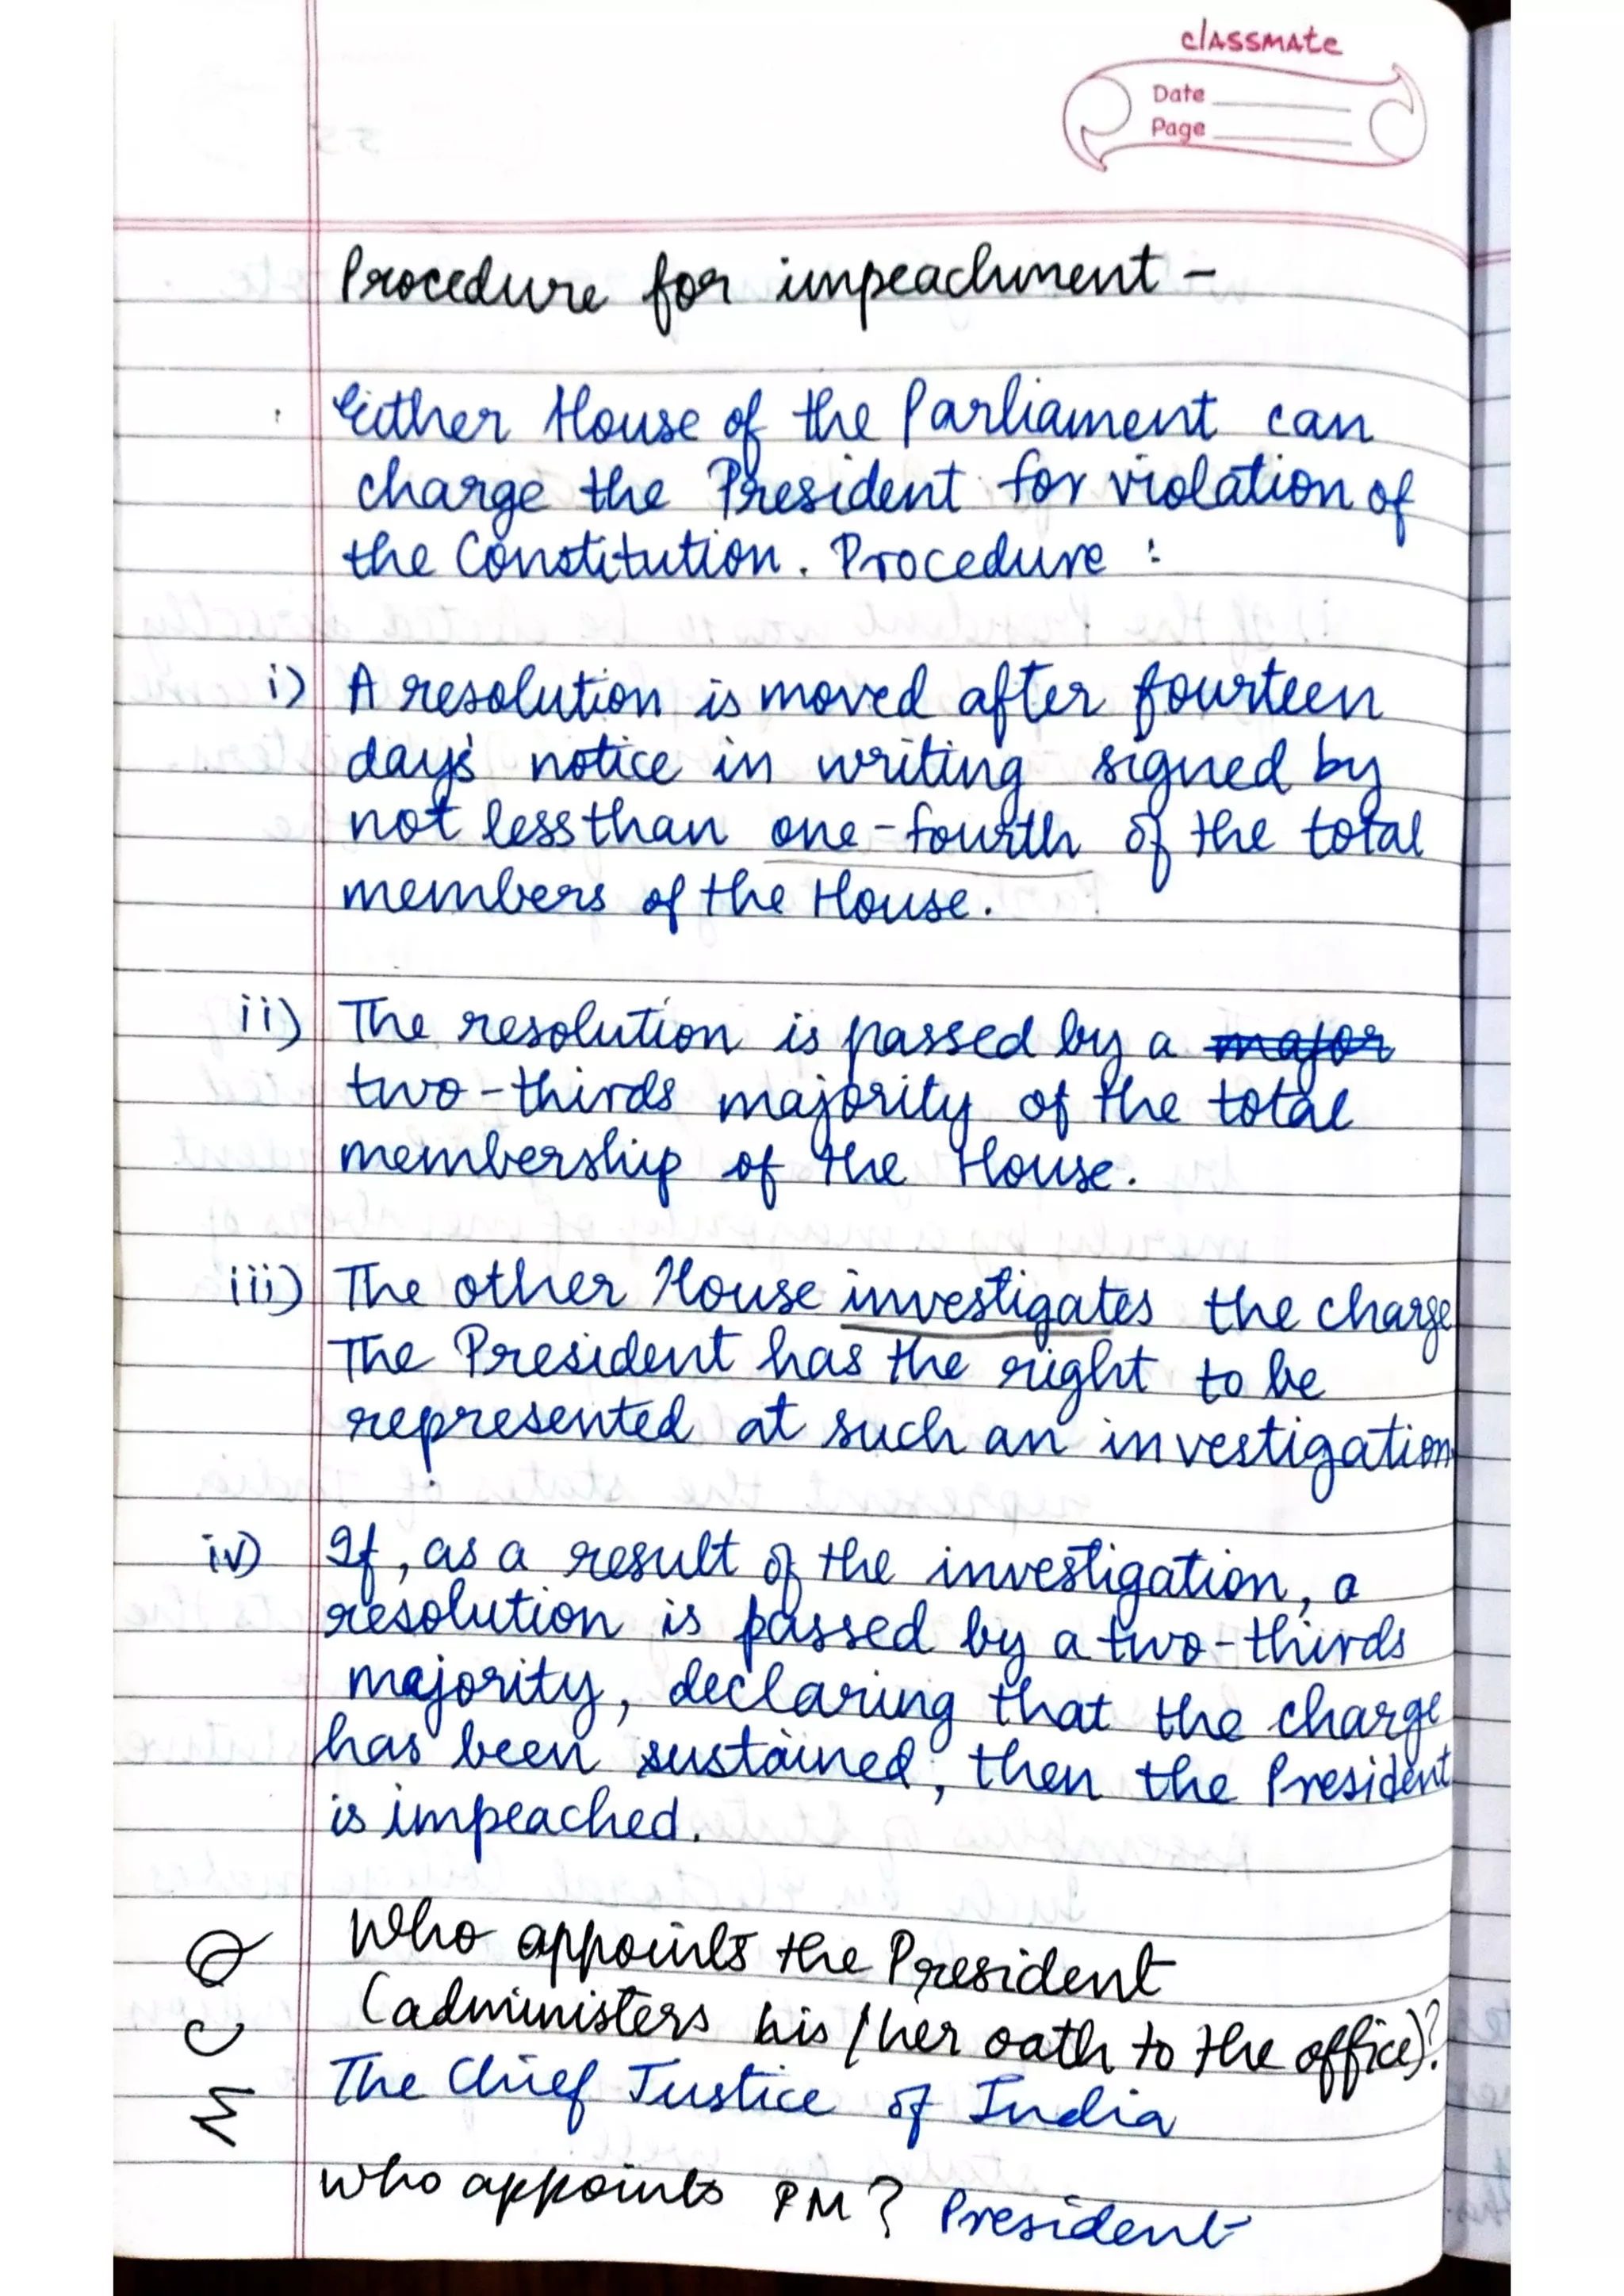 classmate
Date
Page
Procedure for impeachment -
Either House of the Parliament can
charge the President for violation of
the Constitution. Procedure :
i) A resolution is moved after fourteen
day's notice in writing signed by
not less than one-fourth of the total
members of the House.
ii) The resolution is passed by a major
two-thirds majority of the total
membership of the House.
iii) The other House investigates the charge
The President has the right to be
represented at such an investigation
iv) If, as a result of the investigation, a
resolution is passed by a two-thirds
majority, declaring that the charge
has been sustained, then the President
is impeached.
MCQ
Who appoints the President
(administers his/her oath to the office)?
The Chief Justice of India
who appoints PM? President